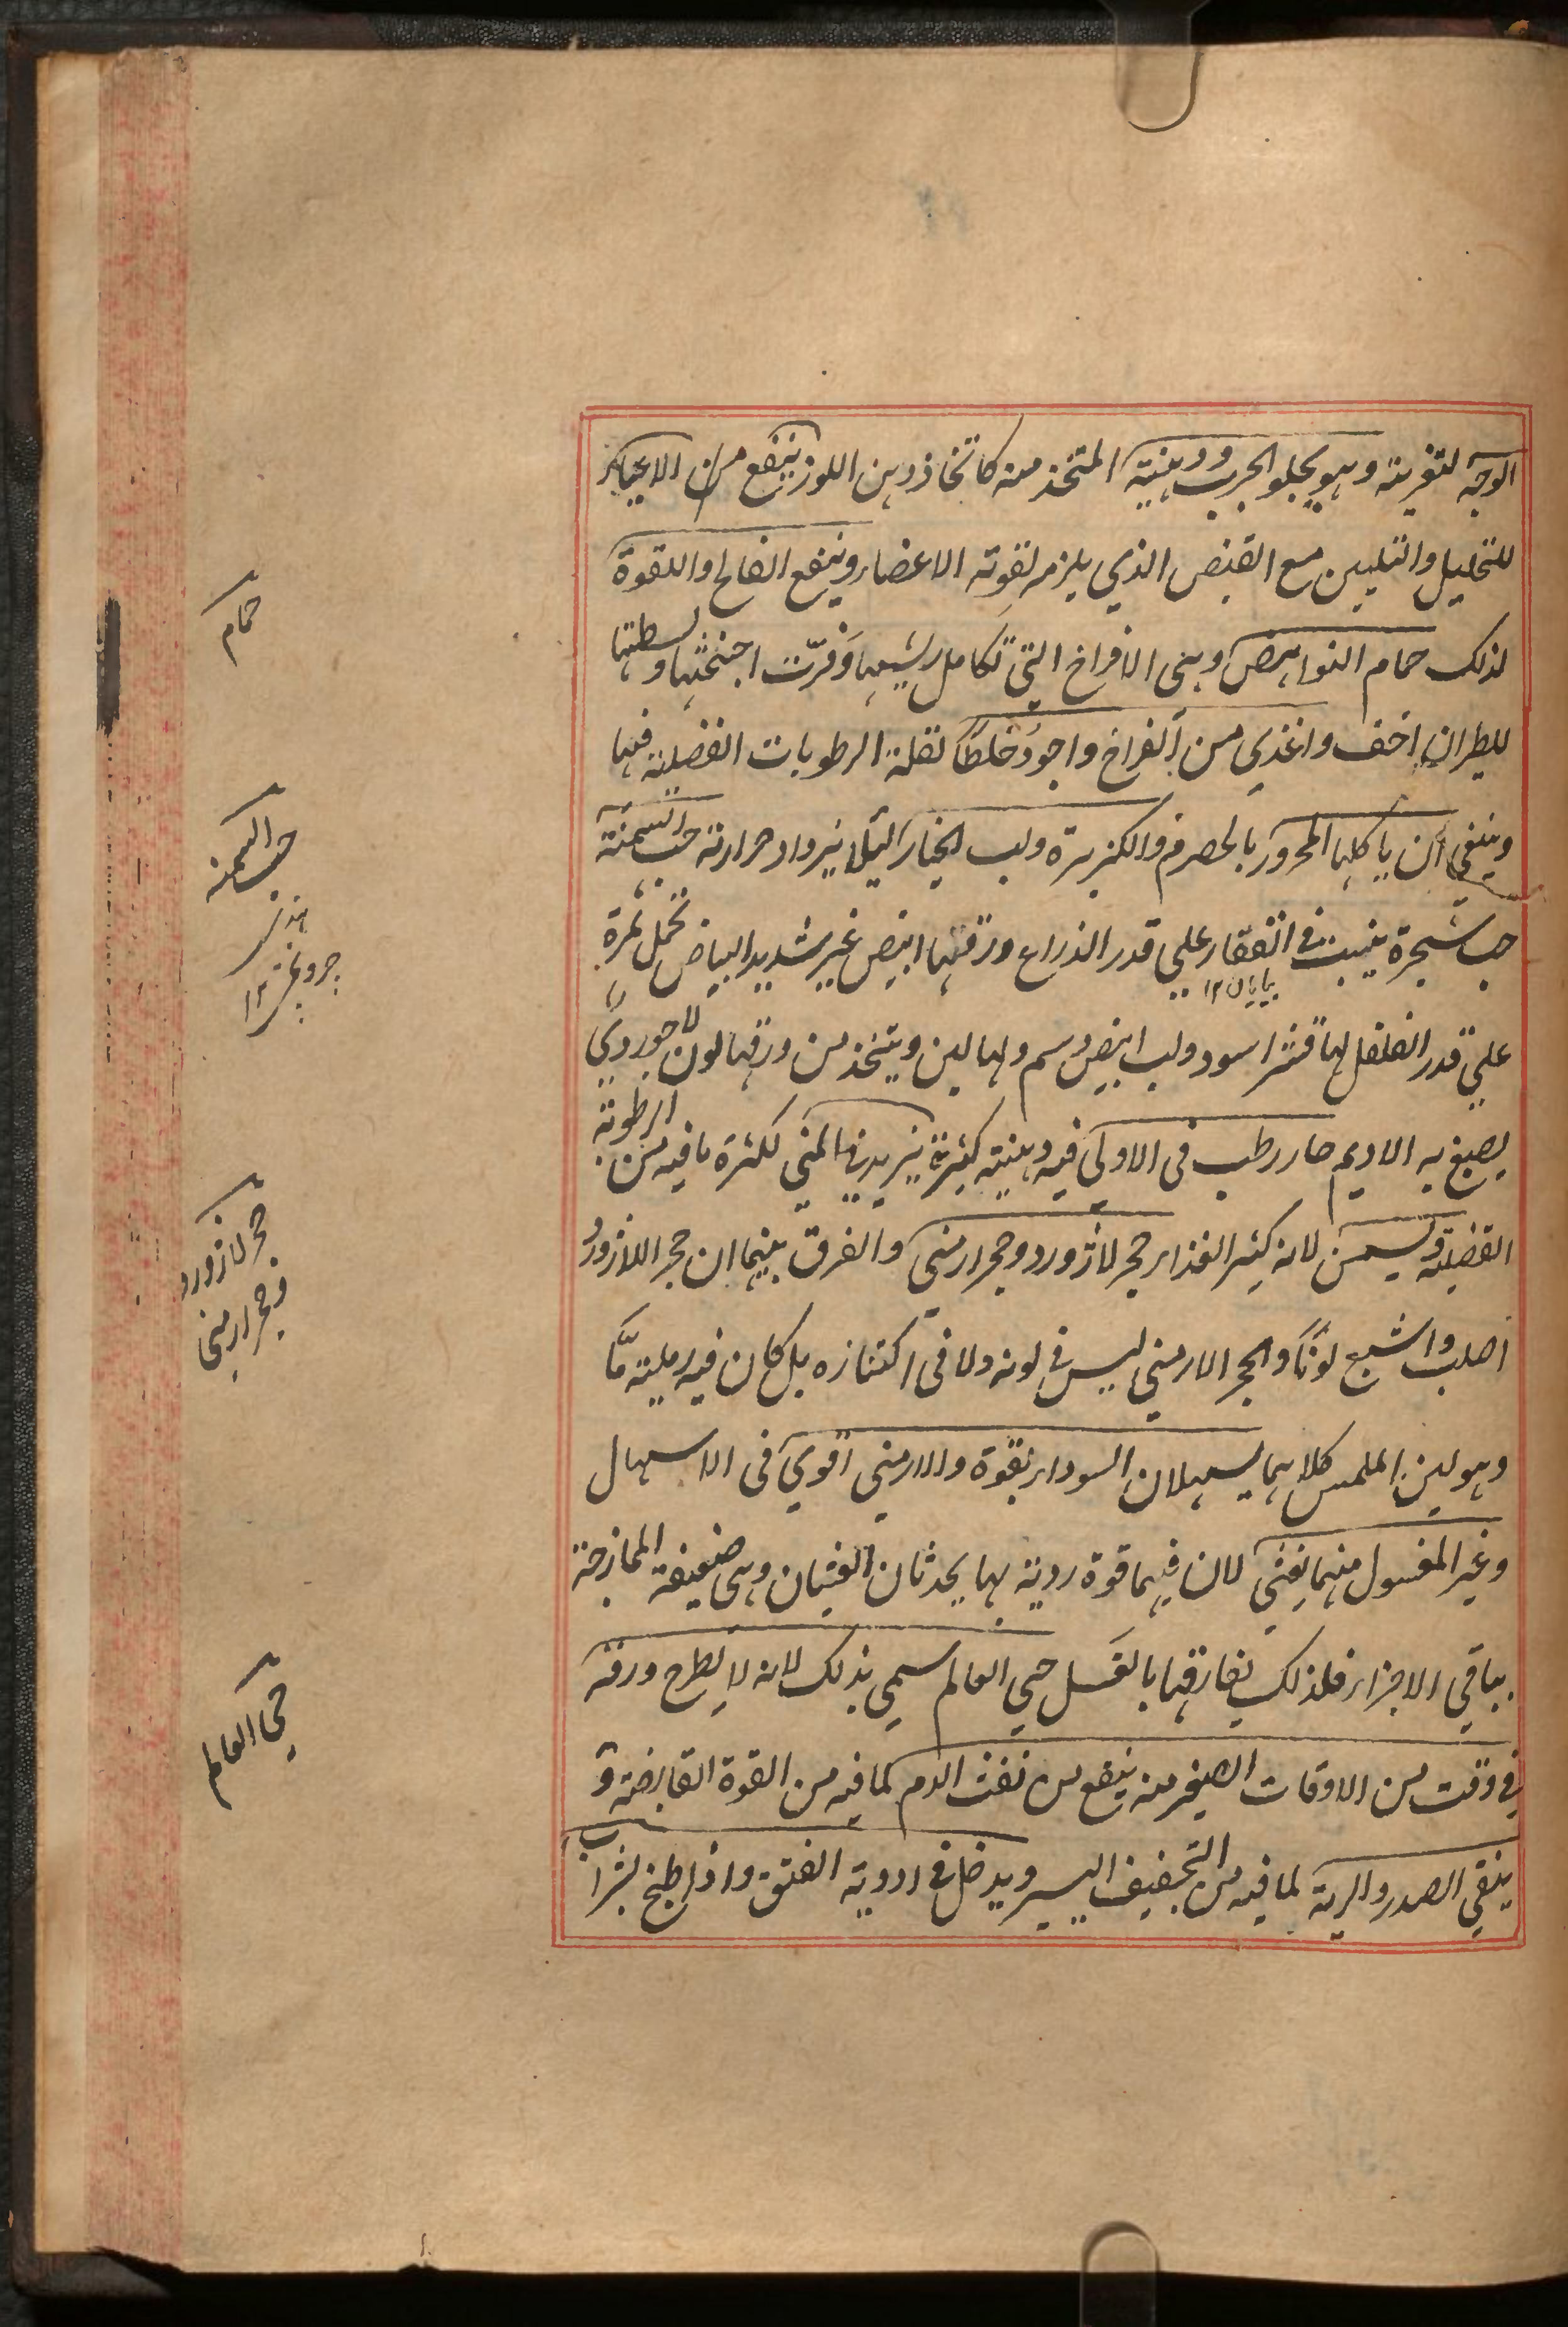 الوجه لتغريته وهو يجلو الجرب ودهنيته المتخذ منه كاتخاذ دهن اللوز ينفع من الاعياء
للتحليل والتليين مع القبض الذي يلزمه لقوته الاعضاء وينفع الفالج واللقوة
لذلك حمام النواهض وهي الافراخ التي تكامل ريشها وقرّت اجنحتها وبسطتها
للطيران اخف واغذي من الفراخ واجود خلطاً لقلة الرطوبات الفضلية فيها
وينبغي أن ياكلها المحرور بالحصرم والكزبرة ولب الخيار لئلا يزداد حرارته حب السمنة
حب شجرة ينبت في القفار علي قدر الذراع ورقها ابيض غير شديد البياض تحمل ثمرة
بيابان ١٢
علي قدر الفلفل لها قشر اسود ولب ابيض دسم ولها لبن ويتخذ من ورقها لون لاجوردي
يصبغ به الاديم حار رطب في الاولي فيه دهنية كثيرة يزيد في المني لكثرة ما فيه من الرطوبة
الفضلية ويسمن لانه كثير الغذاء حجر لاژورد وحجر ارمني والفرق بينهما ان حجر اللازورد
اصلب واشبع لوناً والحجر الارمني ليس في لونه ولا في اكتنازه بل كان فيه رملية مّا
وهو لين الملمس كلاهما يسهلان السوداء بقوة والارمني اقوي في الاسهال
وغير المغسول منهما يغثي لان فيهما قوة ردية بها يحدثان الغثيان وهي ضعيفة الممازجة
بباقي الاجزاء فلذلك يفارقها بالغسل حي العالم سمي بذلك لانه لا يطرح ورقه
في وقت من الاوقات الصغير منه ينفع من نفث الدم لما فيه من القوة القابضة و
ينقي الصدر والرية لما فيه من التجفيف اليسير ويدخل في ادوية الفتق واذا طبخ بشراب
حمام
حب السمنة
حجر لازورد
وحجر ارمني
حي العالم